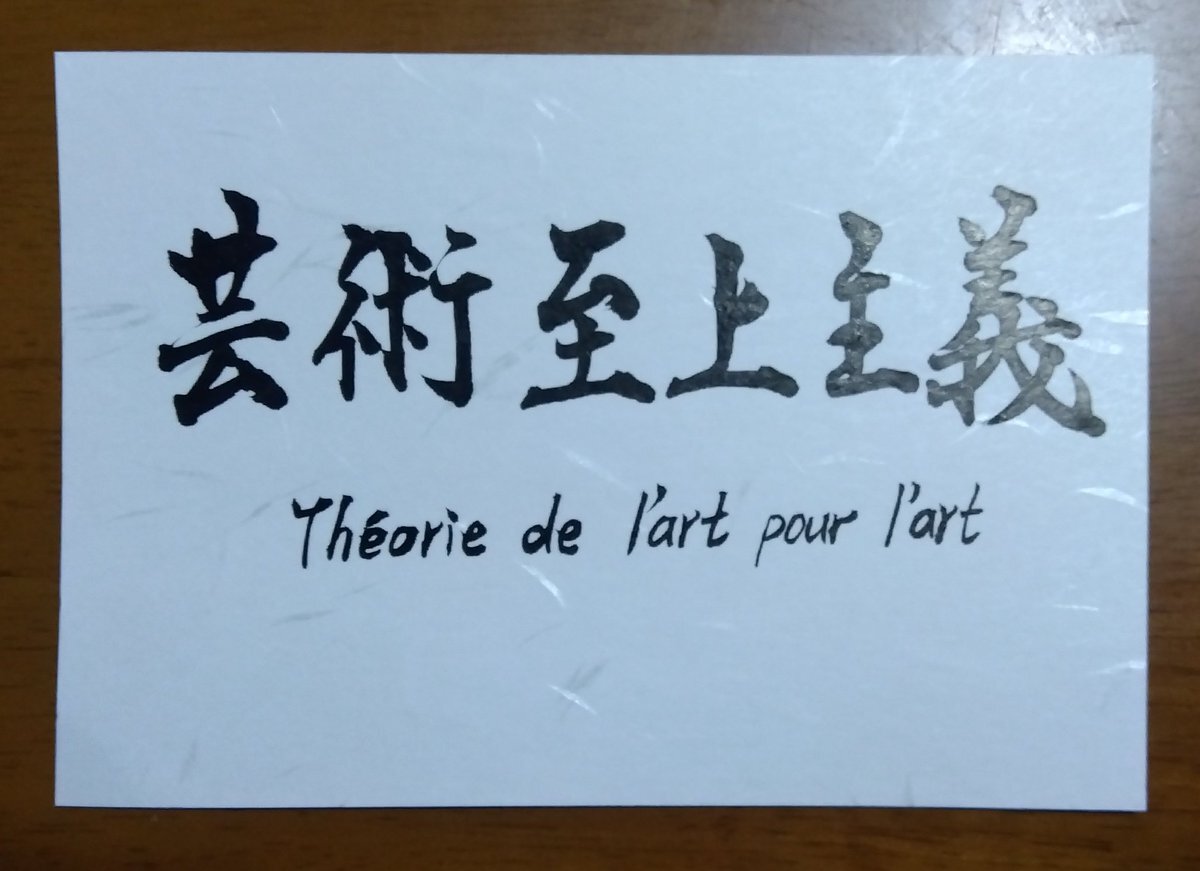 芸術至上主義
Théorie de l'art pour l'art